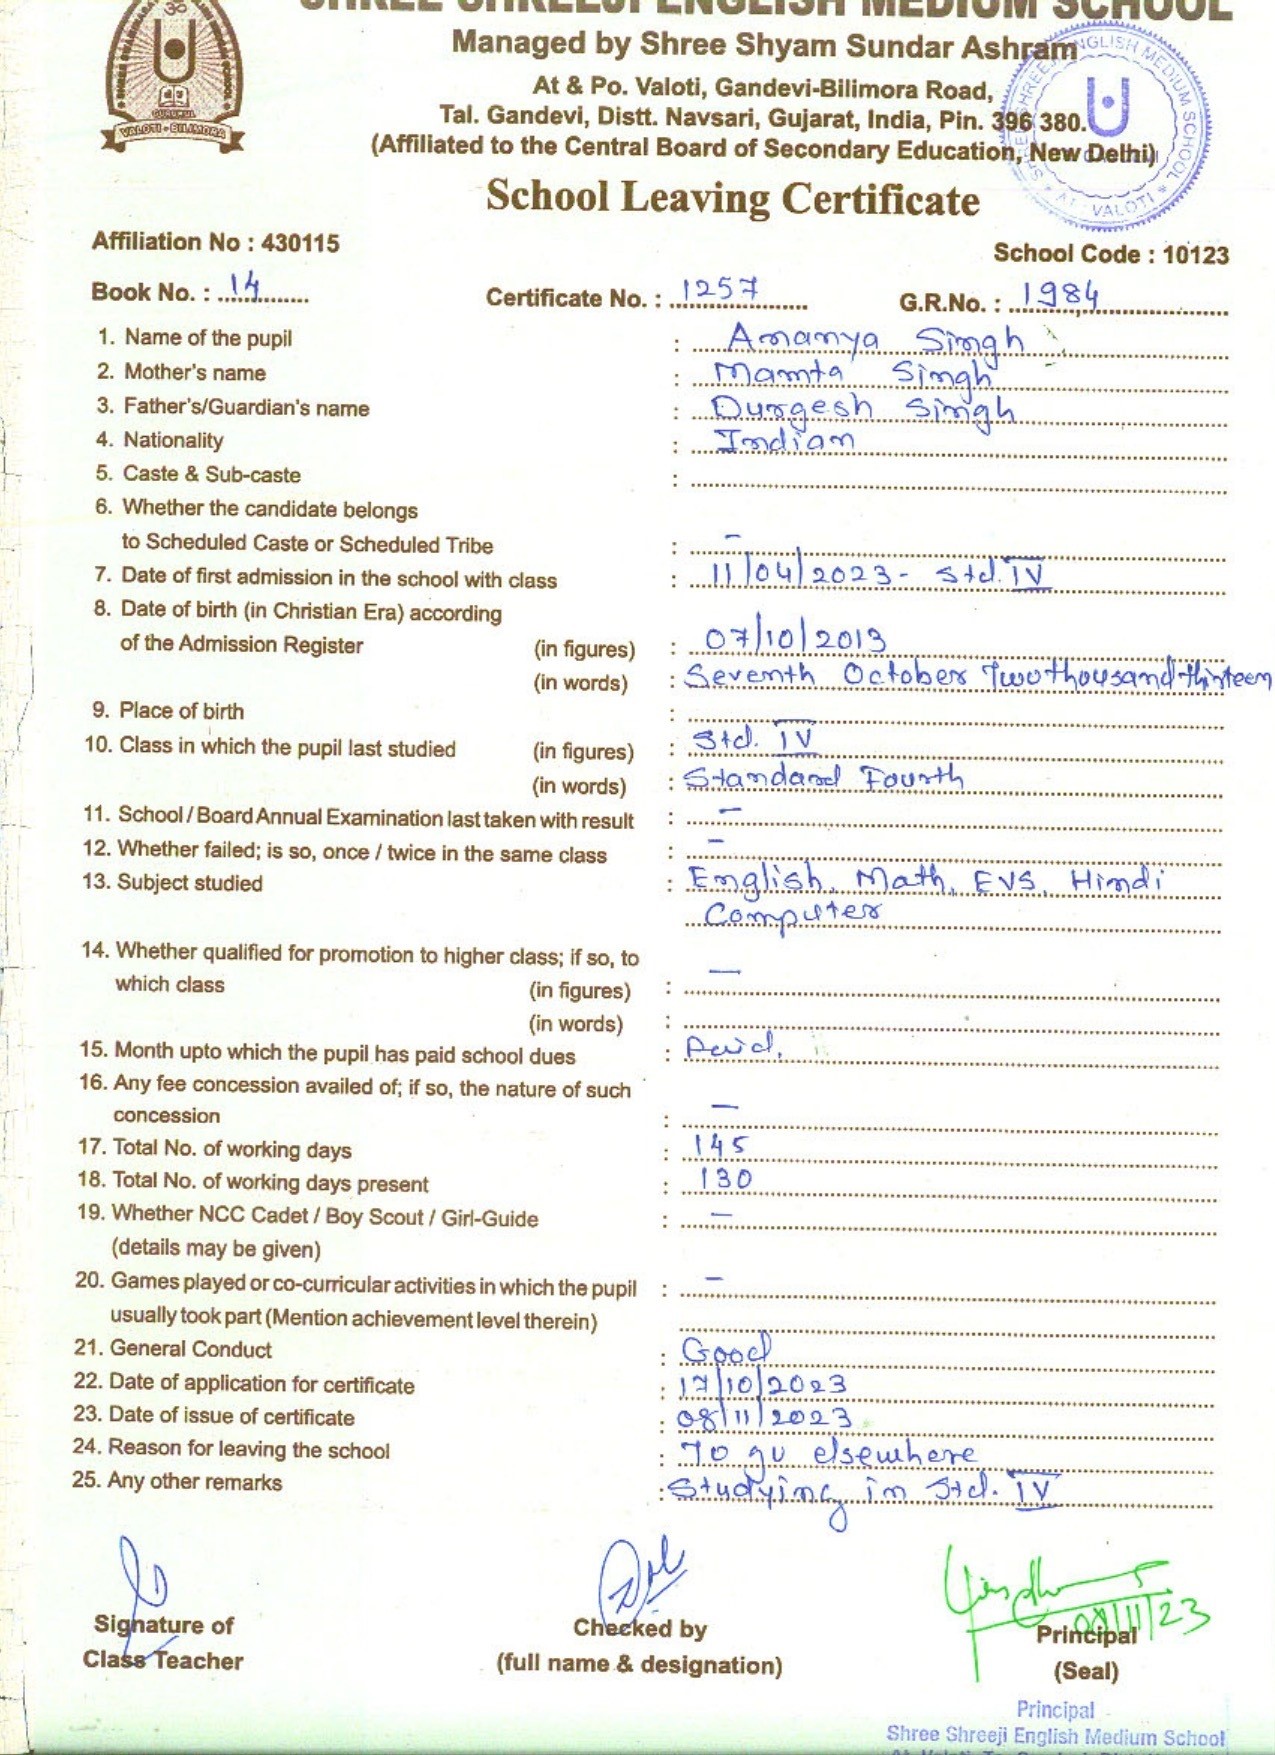 SHREE SHREEJI ENGLISH MEDIUM SCHOOL
Managed by Shree Shyam Sundar Ashram
At & Po. Valoti, Gandevi-Bilimora Road,
Tal. Gandevi, Distt. Navsari, Gujarat, India, Pin. 396 380.
(Affiliated to the Central Board of Secondary Education, New Delhi)
VALOTI - BILIMORA
School Leaving Certificate
Affiliation No : 430115
School Code : 10123
Book No. : 14 Certificate No. : 1257 G.R.No. : 1984
1. Name of the pupil : Ananya Singh
2. Mother's name : Mamta Singh
3. Father's/Guardian's name : Durgesh Singh
4. Nationality : Indian
5. Caste & Sub-caste :
6. Whether the candidate belongs
to Scheduled Caste or Scheduled Tribe : -
7. Date of first admission in the school with class : 11/04/2023 - Std. IV
8. Date of birth (in Christian Era) according
of the Admission Register (in figures) : 07/10/2013
(in words) : Seventh October Two thousand thirteen
9. Place of birth :
10. Class in which the pupil last studied (in figures) : Std. IV
(in words) : Standard Fourth
11. School / Board Annual Examination last taken with result : -
12. Whether failed; is so, once / twice in the same class : -
13. Subject studied : English, Math, EVS, Hindi
Computer
14. Whether qualified for promotion to higher class; if so, to
which class (in figures) : -
(in words) :
15. Month upto which the pupil has paid school dues : Paid.
16. Any fee concession availed of; if so, the nature of such
concession : -
17. Total No. of working days : 145
18. Total No. of working days present : 130
19. Whether NCC Cadet / Boy Scout / Girl-Guide : -
(details may be given)
20. Games played or co-curricular activities in which the pupil : -
usually took part (Mention achievement level therein)
21. General Conduct : Good
22. Date of application for certificate : 17/10/2023
23. Date of issue of certificate : 08/11/2023
24. Reason for leaving the school : To go elsewhere
25. Any other remarks : Studying in Std. IV
08/11/23
Signature of Checked by Principal
Class Teacher (full name & designation) (Seal)
Principal
Shree Shreeji English Medium School